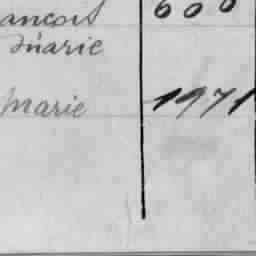 ancois 600
Marie
Marie 1971